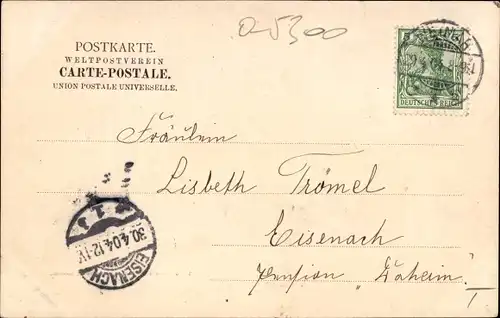 O-5300
POSTKARTE.
WELTPOSTVEREIN
CARTE-POSTALE.
UNION POSTALE UNIVERSELLE.
5
DEUTSCHES REICH
Fräulein
Lisbeth Trömel
Eisenach
Pension "Daheim"
EISENACH
30.4.04.12-1V.